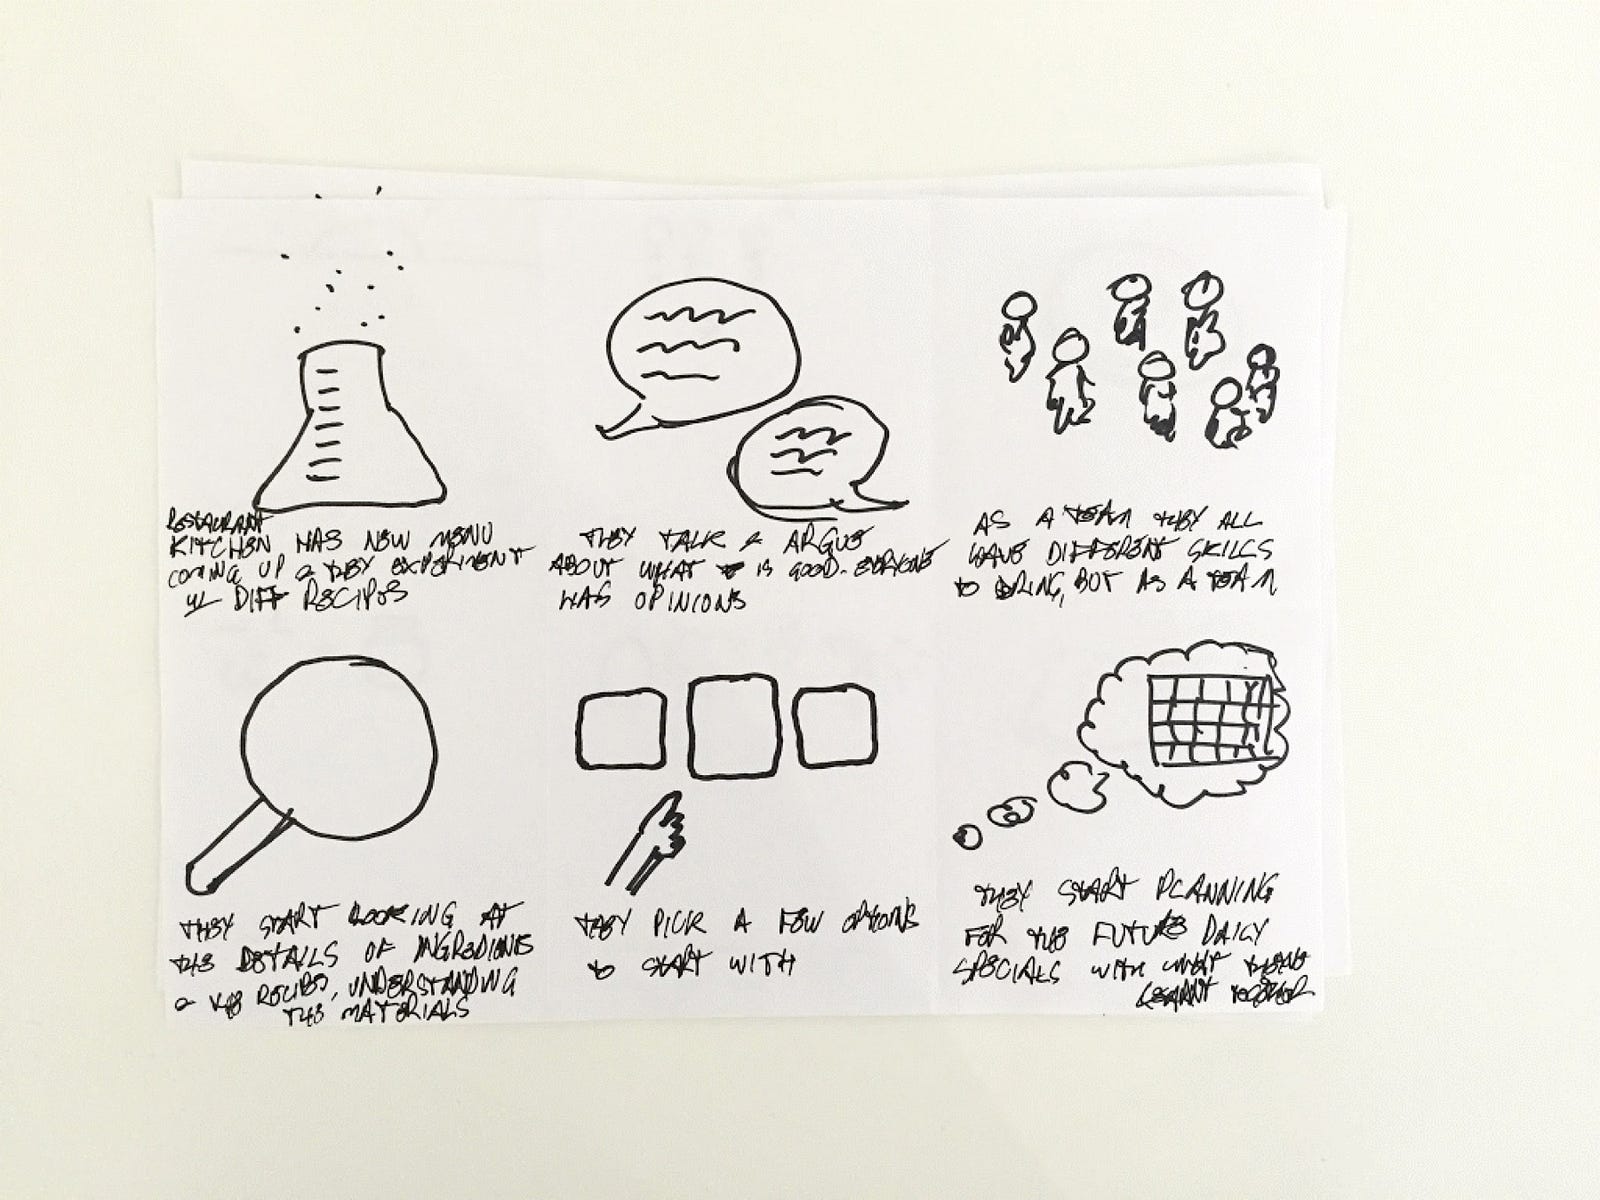 RESTAURANT
KITCHEN HAS NEW MENU
COMING UP & THEY EXPERIMENT
W/ DIFF RECIPES
THEY TALK & ARGUE
ABOUT WHAT IS GOOD. EVERYONE
HAS OPINIONS
AS A TEAM THEY ALL
HAVE DIFFERENT SKILLS
TO BRING, BUT AS A TEAM
THEY START LOOKING AT
THE DETAILS OF INGREDIENTS
& THE RECIPES, UNDERSTANDING
THE MATERIALS
THEY PICK A FEW OPTIONS
TO START WITH
THEY START PLANNING
FOR THE FUTURE DAILY
SPECIALS WITH WHAT
LEARNT TOGETHER